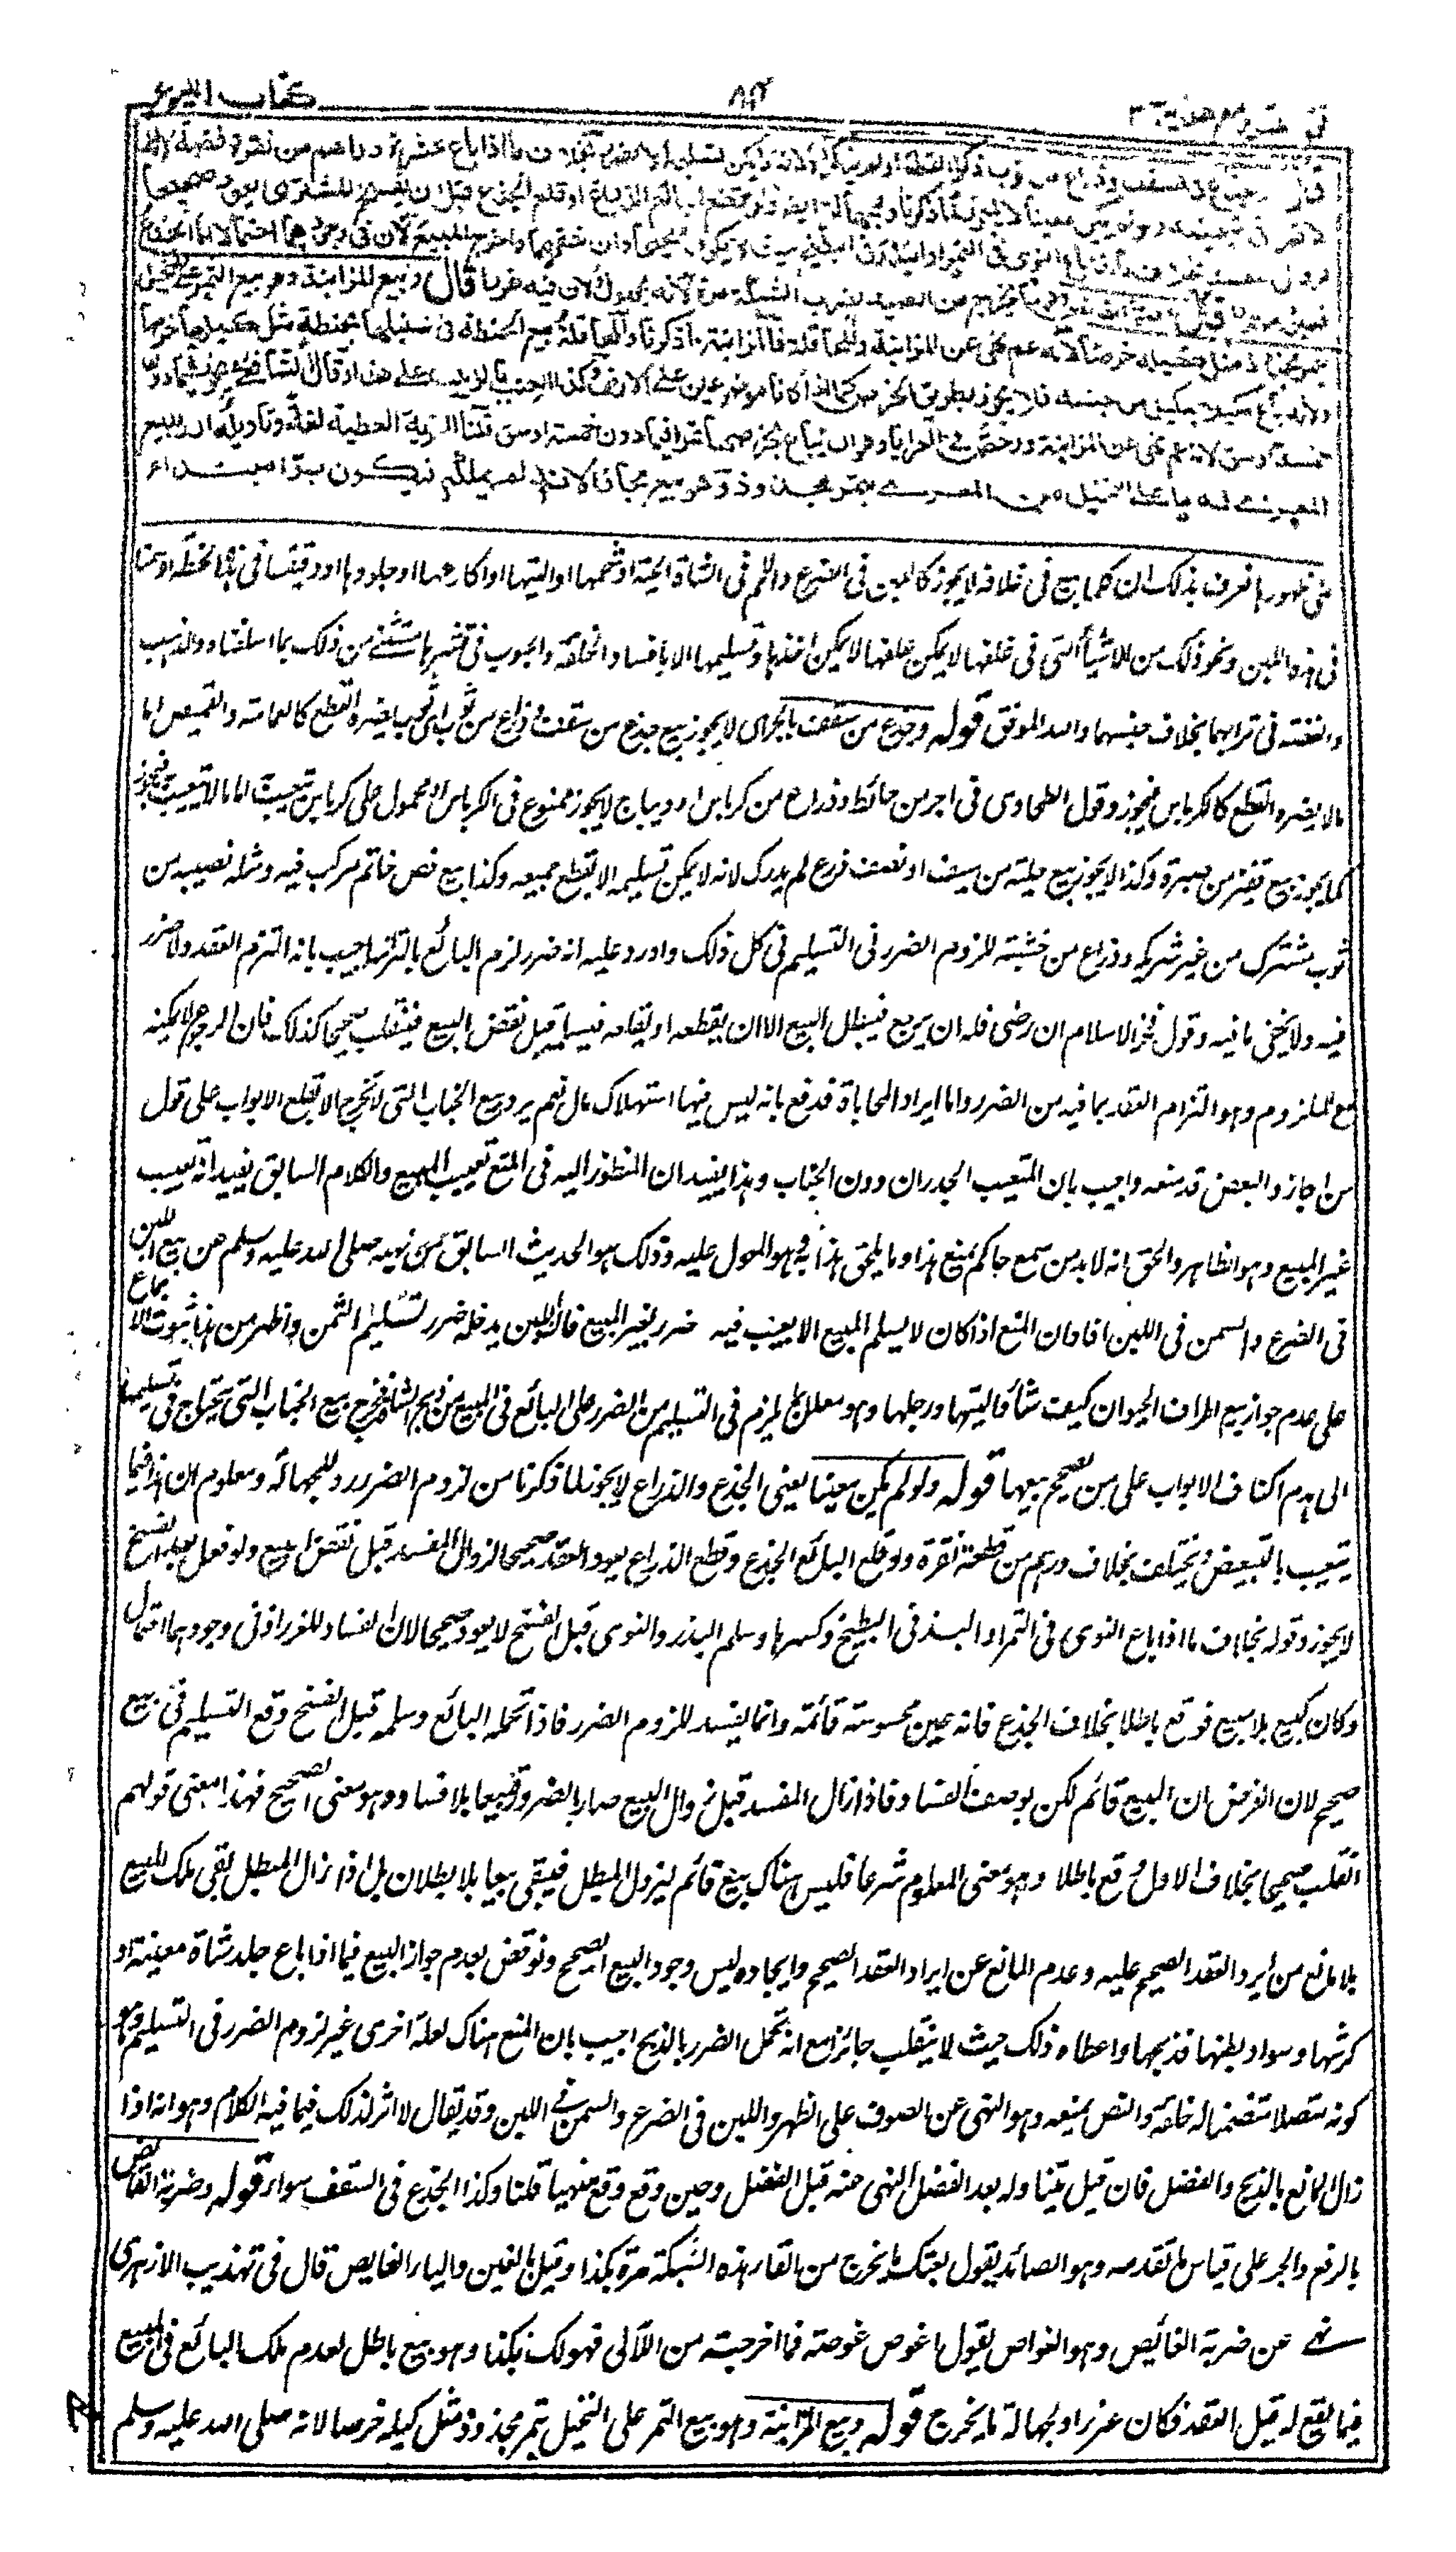 كتاب البيوع
قال وجذع في سقف وذراع من ثوب ذكرا القطع او لم يذكراه لانه لا يمكن تسليمه الا بضرر بخلاف ما اذا باع عشرة دراهم من نقرة فضة لانه
لا ضرر في تبعيضه ولو لم يكن معينا لا يجوز لما ذكرنا وللجهالة ايضا ولو قطع البائع الذراع او قلع الجذع قبل ان يفسخ المشترى يعود صحيحا
لزوال المفسد بخلاف ما اذا باع النوى في التمر او البذر في البطيخ حيث لا يكون صحيحا وان شقهما واخرج المبيع لان في وجودهما احتمالا اما الجذع
فعين موجود قال وضربة القانص وهو ما يخرج من الصيد بضرب الشبكة مرة لانه مجهول ولان فيه غررا قال وبيع المزابنة وهو بيع التمر على النخيل
بتمر مجذوذ مثل كيله خرصا لانه عم نهى عن المزابنة والمحاقلة فالمزابنة ما ذكرنا والمحاقلة بيع الحنطة في سنبلها بحنطة مثل كيلها خرصا
ولانه باع مكيلا بمكيل من جنسه فلا يجوز بطريق الخرص كما اذا كانا موضوعين على الارض وكذا العنب بالزبيب على هذا وقال الشافعي يجوز فيما دون
خمسة اوسق لانه عم نهى عن المزابنة ورخص في العرايا وهو ان يباع بخرصها تمرا فيما دون خمسة اوسق قلنا العرية العطية لغة وتاويله ان يبيع
المعرى له ما على النخيل من المعرى بتمر مجذوذ وهو بيع مجازا لانه لم يملكه فيكون برا مبتداء
في هذا اللبن ونحو ذلك من الاشياء التى في غلفها لا يمكن اخذها وتسليمها الا بافساد الخلقة والحبوب في قشرها مستثنى من ذلك بما اسلفناه والذهب
والفضة في ترابهما بخلاف جنسهما والله الموفق قوله وجذع من سقف بالجر اى لا يجوز بيع جذع من سقف وذراع من ثوب اى ثوب يضره القطع كالعمامة والقميص اما
مالا يضره القطع كالكرباس فيجوز وقول الطحاوى في اجر من حائط وذراع من كرباس او ديباج لا يجوز ممنوع في الكرباس او محمول على كرباس يتعيب اما مالا يتعيب فيجوز
كما يجوز بيع قفيز من صبرة وكذا لا يجوز بيع حلية من سيف او نصف زرع لم يدرك لانه لا يمكن تسليمه الا بقطع جميعه وكذا بيع فص خاتم مركب فيه ومثله نصيبه من
ثوب مشترك من غير شريكه وذراع من خشبة للزوم الضرر في التسليم في كل ذلك واورد عليه انه ضرر لزم البائع بالتزامه اجيب بانه التزم العقد ولا ضرر
فيه ولا يخفى ما فيه وقول فخر الاسلام ان رضى فله ان يرجع فيبطل البيع الا ان يقطعه او يقلعه فيسلمه قبل نقض البيع فينقلب صحيحا كذلك فان الرجوع لا يمكنه
مع الملزوم وهو التزام العقد بما فيه من الضرر واما ايراد المحاباة فدفع بانه ليس فيها استهلاك مال نعم يرد بيع الخباب التى لا تخرج الا بقلع الابواب على قول
من اجاز والبعض قد منعه واجيب بان المتعيب الجدران دون الخباب وهذا يفيد ان المنظور اليه في المنع تعييب المبيع والكلام السابق يفيد انه تعييب
غير المبيع وهو الظاهر والحق انه لا بد من سمع حاكم بمنع هذا وما يلحق هذا به هو المعول عليه وذلك هو الحديث السابق من نهيه صلى الله عليه وسلم عن بيع اللبن
في الضرع والسمن في اللبن افاد ان المنع اذا كان لا يسلم المبيع الا بعيب فيه ضرر لغير المبيع فان اللبن يدخله ضرر تسليم الثمن واظهر من هذا ثبوت الاجماع
على عدم جواز بيع اطراف الحيوان كيف شاء كاليتها ورجلها وهو معلل بما يلزم في التسليم من الضرر على البائع في المبيع من ذبح الشاة فخرج بيع الخباب التى يحتاج في تسليمها
الى هدم اكتاف الابواب على من يصحح بيعها قوله ولو لم يكن معينا يعنى الجذع والذراع لا يجوز لما ذكرنا من لزوم الضرر وللجهالة ومعلوم ان هذا فيما
يتعيب بالتبعيض ويختلف بخلاف درهم من قطعة نقرة ولو قلع البائع الجذع وقطع الذراع يعود العقد صحيحا لزوال المفسد قبل نقض البيع ولو فعل بعد الفسخ
لا يجوز وقوله بخلاف ما اذا باع النوى في التمر او البذر في البطيخ وكسرها وسلم البذر والنوى قبل الفسخ لا يعود صحيحا لان الفساد للغرر اذ في وجودهما احتمال
وكان كبيع بلا مبيع فوقع باطلا بخلاف الجذع فانه عين محسوسة قائمة وانما يفسد للزوم الضرر فاذا تحمله البائع وسلمه قبل الفسخ وقع التسليم في بيع
صحيح لان الفرض ان البيع قائم لكن بوصف الفساد فاذا زال المفسد قبل زوال البيع صار بالضرورة بيعا بلا فساد وهو معنى الصحيح فهذا معنى قولهم
انقلب صحيحا بخلاف الاول وقع باطلا وهو معنى المعلوم شرعا فليس هناك بيع قائم ليزول المبطل فيبقى بيعا بلا بطلان بل اذا زال المبطل بقى ملك المبيع
بلا مانع من ايراد العقد الصحيح عليه وعدم المانع عن ايراد العقد الصحيح وايجاده ليس وجود البيع الصحيح ونوقض بعدم جواز البيع فيما اذا باع جلد شاة معينة او
كرشها وسواد بطنها فذبحها واعطاه ذلك حيث لا ينقلب جائزا مع انه تحمل الضرر بالذبح اجيب بان المنع هناك لعلة اخرى غير لزوم الضرر في التسليم وهو
كونه متصلا متضمنا له خلقة والنص يمنعه وهو النهى عن الصوف على الظهر واللبن في الضرع والسمن في اللبن وقد يقال لا اثر لذلك فيما فيه الكلام وهو انه اذا
زال المانع بالذبح والفصل فان قيل بينا وله بعد الفصل المنهى عنه قبل الفصل وحين وقع وقع منهيا قلنا وكذا الجذع في السقف سواء قوله وضربة القانص
بالرفع والجر على قياس ما تقدمه وهو الصائد يقول بعتك ما يخرج من القاء هذه الشبكة مرة بكذا وقيل بالغين والياء الغايص قال في تهذيب الازهرى
نهى عن ضربة الغائص وهو الغواص يقول اغوص غوصة فما اخرجته من اللآلى فهو لك بكذا وهو بيع باطل لعدم ملك البائع في المبيع
فيما يقع له قبل العقد فكان غررا ولجهالة ما يخرج قوله وبيع المزابنة وهو بيع التمر على النخيل بتمر مجذوذ مثل كيله خرصا لانه صلى الله عليه وسلم